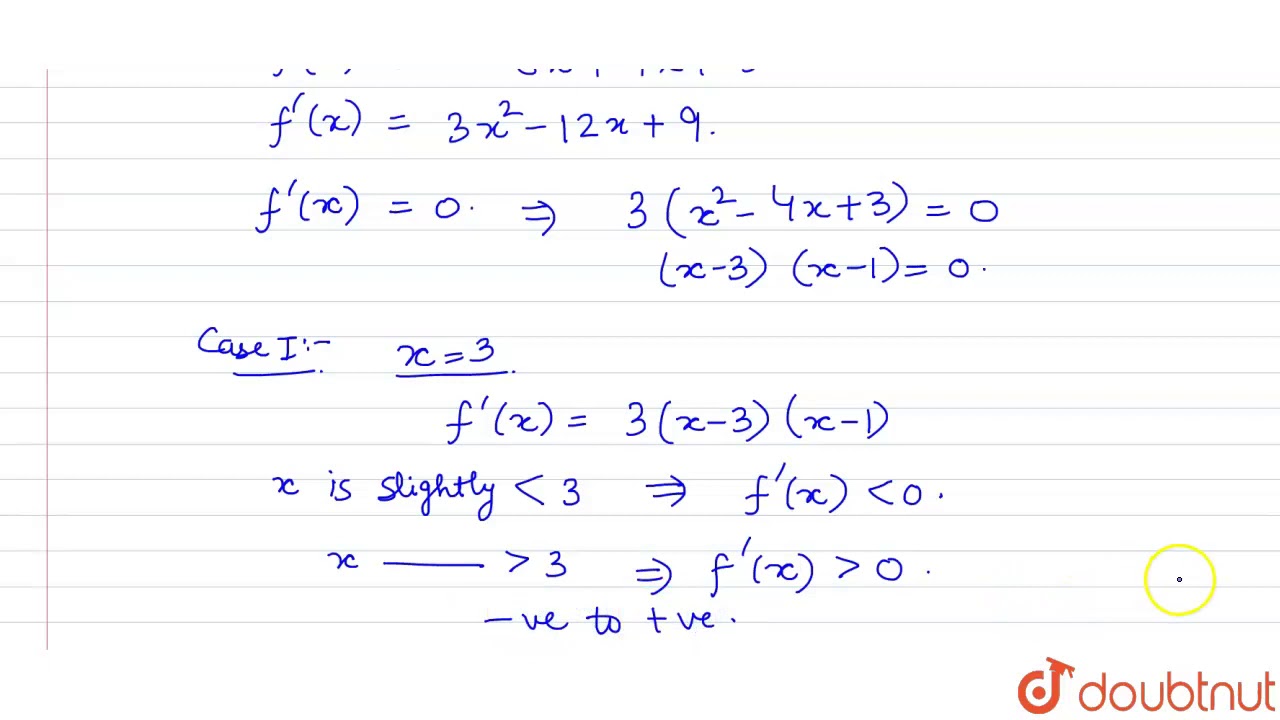 f'(x) = 3x² - 12x + 9.
f'(x) = 0. ⇒ 3(x² - 4x + 3) = 0
(x-3) (x-1) = 0.
Case I :- x = 3
f'(x) = 3(x-3)(x-1)
x is slightly < 3 ⇒ f'(x) < 0.
x —— > 3 ⇒ f'(x) > 0.
-ve to +ve.
doubtnut